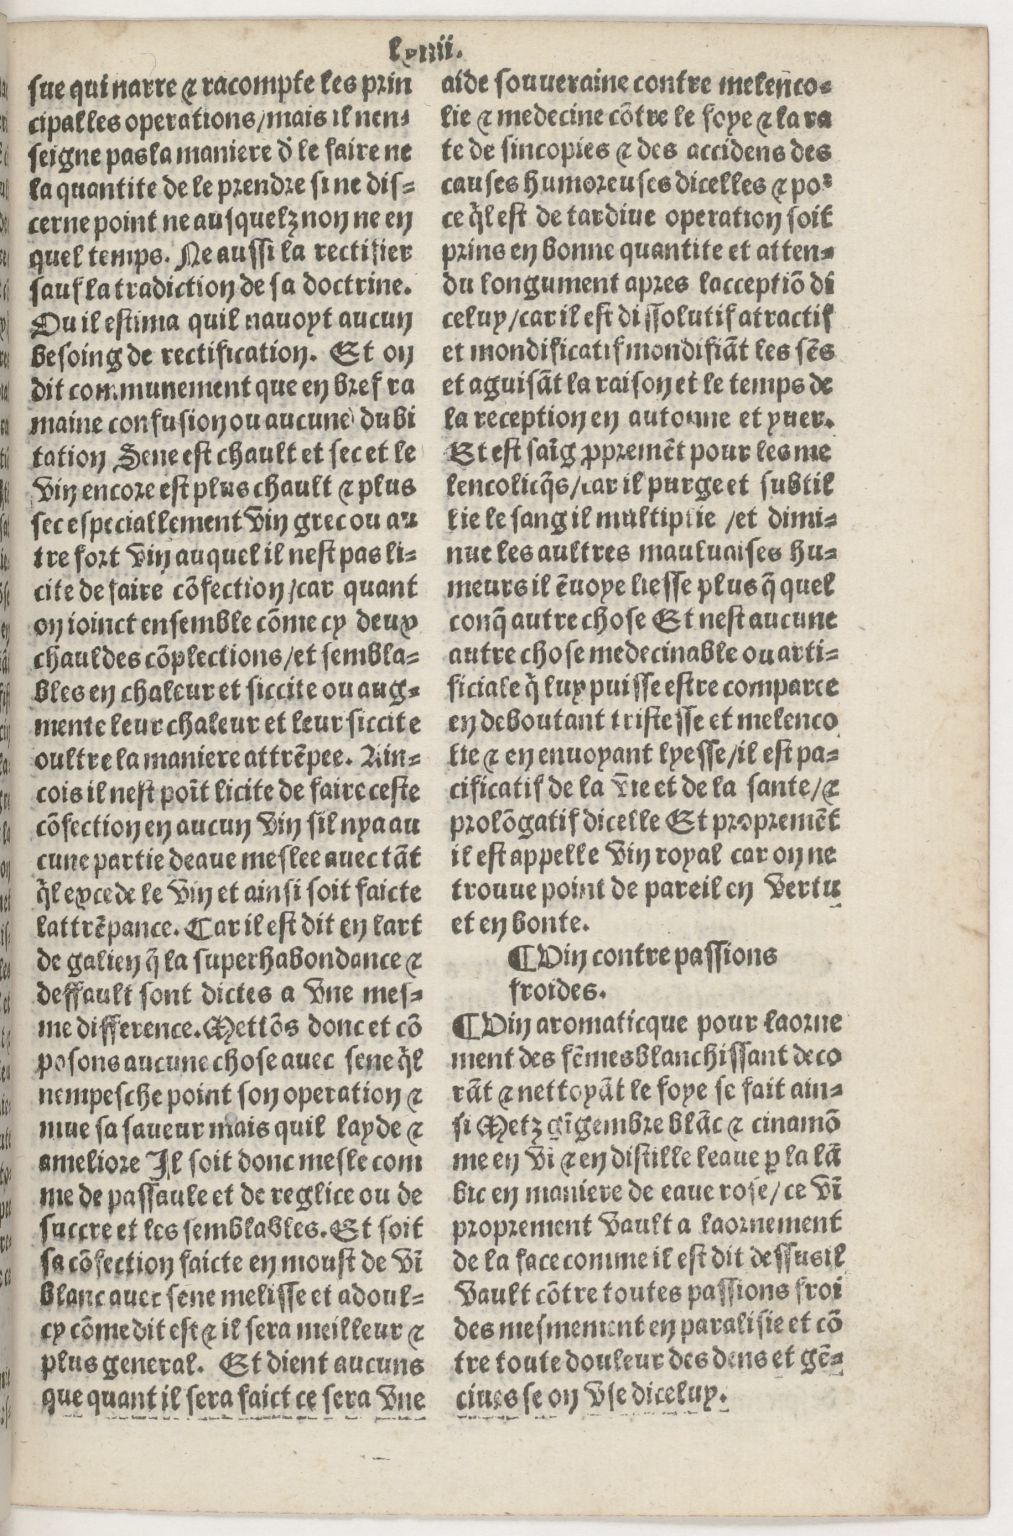 lxiiii.
sue qui narre ⁊ racompte les prin
cipalles operations/mais il nen-
seigne pas la maniere d̕ le faire ne
la quantite de le prendre si ne dis-
cerne point ne ausquelz non ne en
quel temps. Ne aussi la rectifier
sauf la tradiction de sa doctrine.
Ou il estima quil nauoyt aucun
besoing de rectification. Et on
dit communement que en bref ra
maine confusion ou aucune dubi
tation Sene est chault et sec et le
vin encore est plus chault ⁊ plus
sec especiallement vin grec ou au
tre fort vin auquel il nest pas li-
cite de faire cõfection/car quant
on ioinct ensemble cõme cy deux
chauldes cõplections/et sembla-
bles en chaleur et siccite ou aug-
mente leur chaleur et leur siccite
oultre la maniere attrẽpee. Ain-
cois il nest poĩt licite de faire ceste
cõfection en aucun vin sil nya au
cune partie deaue meslee auec tãt
q̃l excede le vin et ainsi soit faicte
lattrẽpance. Car il est dit en lart
de galien q̃ la superhabondance ⁊
deffault sont dictes a vne mes-
me difference. Mettõs donc et cõ
posons aucune chose auec sene q̃l
nempesche point son operation ⁊
mue sa saueur mais quil layde ⁊
ameliore Il soit donc mesle com
me de passaule et de reglice ou de
succre et les semblables. Et soit
sa cõfection faicte en moust de vĩ
blanc auec sene melisse et adoul-
cy cõme dit est ⁊ il sera meilleur ⁊
plus general. Et dient aucuns
que quant il sera faict ce sera vne
aide souueraine contre melenco-
lie ⁊ medecine cõtre le foye ⁊ la ra
te de sincopies ⁊ des accidens des
causes humoreuses dicelles ⁊ poꝛ
ce q̃l est de tardiue operation soit
prins en bonne quantite et atten-
du longument apres lacceptiõ di
celuy/car il est dissolutif atractif
et mondificatif mondifiãt les sẽs
et aguisãt la raison et le temps de
la reception en automne et yuer.
Et est saĩg ꝓpremẽt pour les me
lencolicq̃s/car il purge et subtil
lie le sang il multiplie /et dimi-
nue les aultres mauluaises hu-
meurs il ẽuoye liesse plus q̃ quel
conq̃ autre chose Et nest aucune
autre chose medecinable ou arti-
ficiale q̃ luy puisse estre comparee
en deboutant tristesse et melenco
lie ⁊ en enuoyant lyesse/il est pa-
cificatif de la vie et de la sante/⁊
prolõgatif dicelle Et propremẽt
il est appelle vin royal car on ne
trouue point de pareil en vertu
et en bonte.
¶Vin contre passions
froides.
¶Vin aromaticque pour laorne
ment des fẽmes blanchissant deco
rãt ⁊ nettoyãt le foye se fait ain-
si Metz gĩgembre blãc ⁊ cinamõ
me en vĩ ⁊ en distille leaue ꝑ la lã
bic en maniere de eaue rose/ce vĩ
proprement vault a laornement
de la face comme il est dit dessus il
vault cõtre toutes passions froi
des mesmement en paralisie et cõ
tre toute douleur des dens et gẽ-
ciues se on vse diceluy.